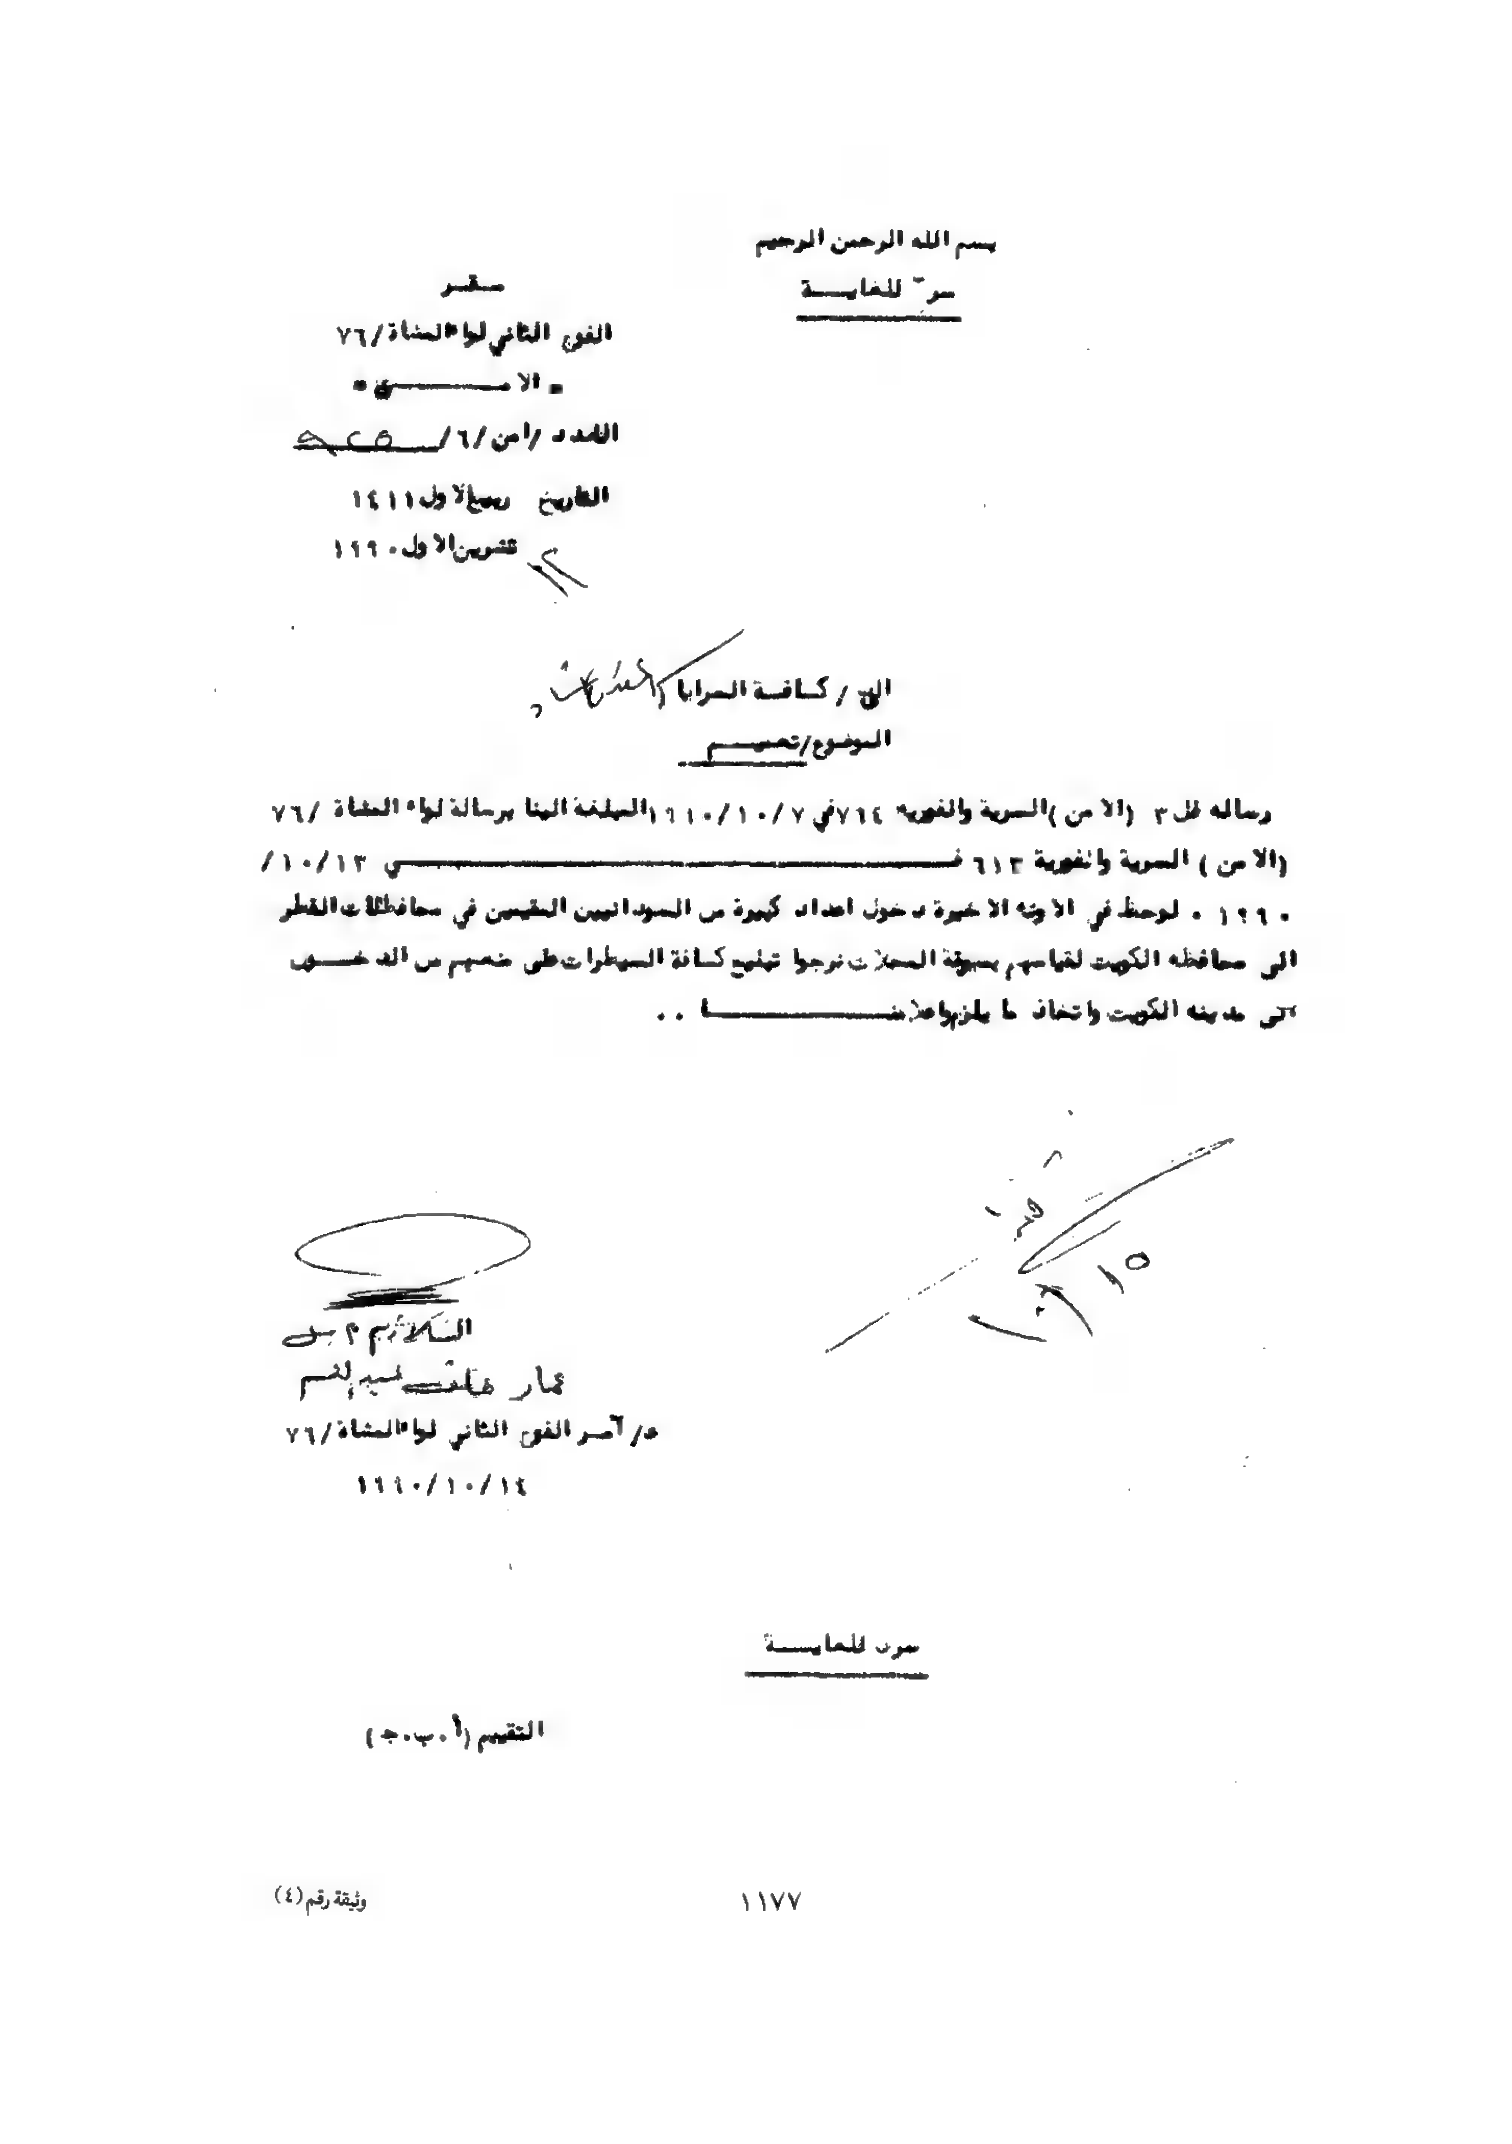 بسم الله الرحمن الرحيم
سرى للغايـــــة
صقـــر
الفوج الثاني لواء المشاة/٧٦
= الامــــــــن =
العدد /امن/٦/ ٩٢٥
التاريخ ربيع الاول ١٤١١
تشرين الاول ١٩٩٠
الى / كـافـــة السرايا
الموضوع/تعميـــم
رساله فل ٣ (الامن)السرية والفوريه ٧٦٤في ١٩٩٠/١٠/٧المبلغة الينا برسالة لواء المشاة /٧٦
(الامن) السرية والفورية ٦١٣ فـــــــــــــــــــــي ١٠/١٣/
١٩٩٠ . لوحظ في الاونه الاخيرة دخول اعداد كبيرة من السودانيين المقيمين في محافظات القطر
الى محافظه الكويت لقيامهم بسرقة المحلات نرجوا تبليغ كـافة السيطرات على منعهم من الدخـــول
الى مدينه الكويت واتخاذ ما يلزم واعلامنـــــــــــا ..
١٥
الملازم
عمار
ء/ آمــر الفوج الثاني لواء المشاة/٧٦
١٩٩٠/١٠/١٤
سرى للغايـــــة
التقييم (أ.ب.ج)
١١٧٧
وثيقة رقم (٤)